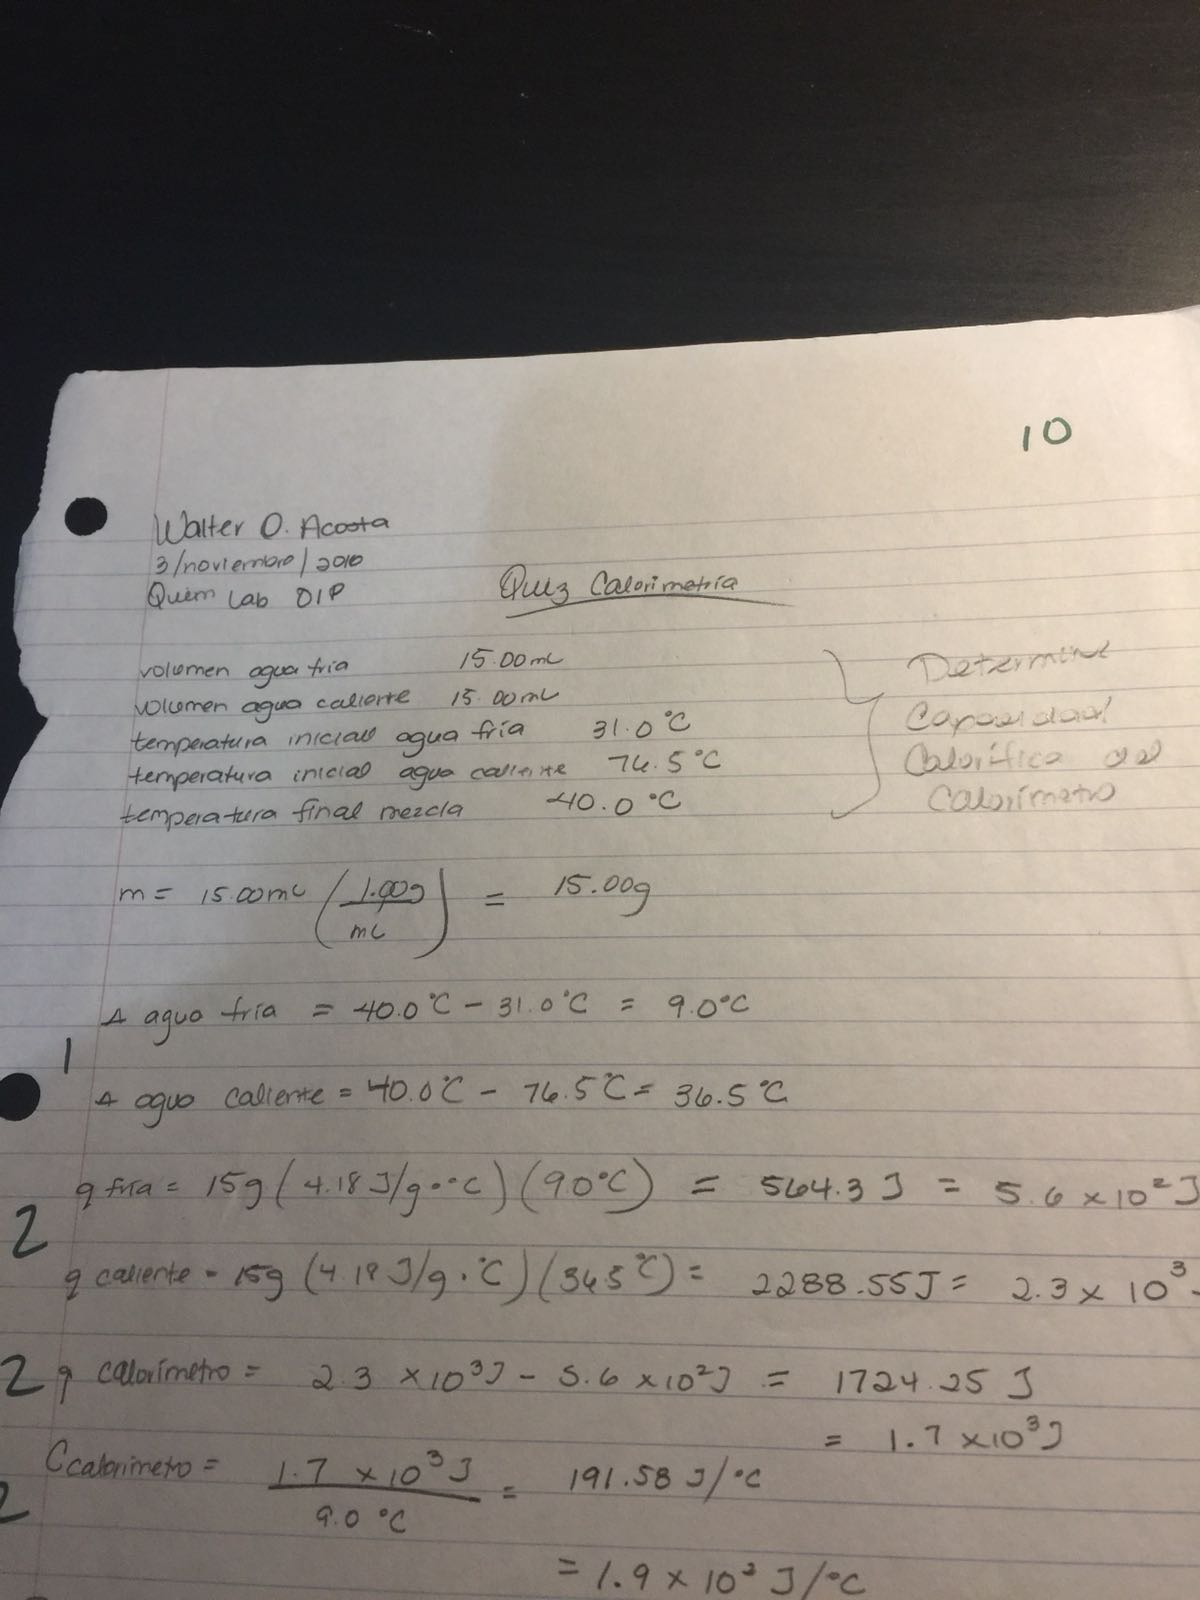 10
Walter O. Acosta
3/noviembre/2010
Quim Lab 01P
Quiz Calorimetría
volumen agua fria 15.00mL
volumen agua caliente 15.00mL
temperatura inicial agua fría 31.0°C
temperatura inicial agua caliente 76.5°C
temperatura final mezcla 40.0°C
Determine
Capacidad
Calorífica del
Calorímetro
m = 15.00mL (1.00g/mL) = 15.00g
Δ agua fría = 40.0°C - 31.0°C = 9.0°C
1
Δ agua caliente = 40.0°C - 76.5°C = 36.5°C
q fria = 15g (4.18J/g·°C) (9.0°C) = 564.3 J = 5.6 x 10² J
2
q caliente = 15g (4.18J/g·°C) (36.5°C) = 2288.55J = 2.3 x 10³
2 q calorímetro = 2.3 x10³J - 5.6 x10²J = 1724.25 J
= 1.7 x10³J
Ccalorimetro = 1.7 x10³J / 9.0 °C = 191.58 J/°C
2
= 1.9 x 10² J/°C